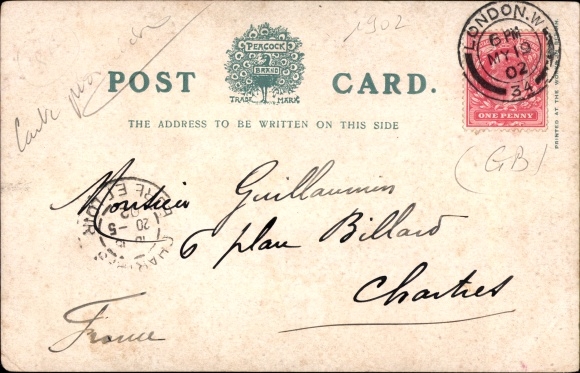 1902
LONDON.W
6 PM
MY 19
02
34
PEACOCK
BRAND
TRADE MARK
POST CARD.
THE ADDRESS TO BE WRITTEN ON THIS SIDE
ONE PENNY
PRINTED AT THE
Carte
(GB)
CHARTRES
EURE ET LOIR
20 - 5
02
Monsieur Guillaumin
6 place Billard
Chartres
France